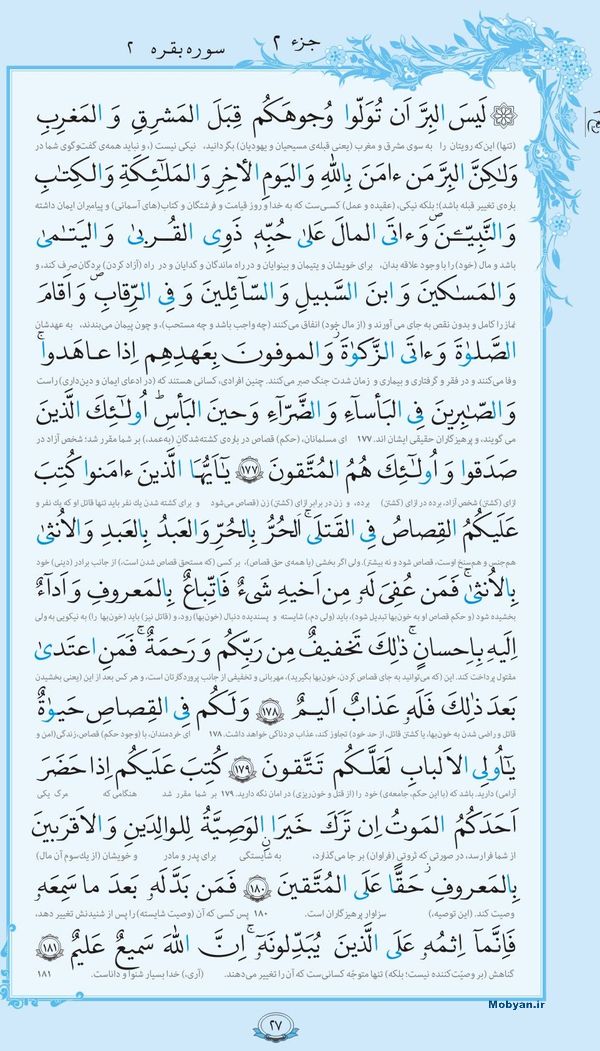 جزء ۲
سوره بقره ۲
لَیسَ البِرَّ اَن تُوَلّوا وُجوهَکُم قِبَلَ المَشرِقِ وَ المَغرِبِ
(تنها) این‌که رویتان را به سوی مشرق و مغرب (یعنی قبله‌ی مسیحیان و یهودیان) بگردانید، نیکی نیست (، و نباید همه‌ی گفت‌وگوی شما در
وَلٰکِنَّ البِرَّ مَن ءامَنَ بِاللّٰهِ وَ الیَومِ الأخِرِ وَ المَلٰئِکَةِ وَ الکِتٰبِ
باره‌ی تغییر قبله باشد)؛ بلکه نیکی، (عقیده و عمل) کسی‌ست که به خدا و روز قیامت و فرشتگان و کتاب(های آسمانی) و پیامبران ایمان داشته
وَ النَّبِیّـٖنَ وَ ءاتَی المالَ عَلیٰ حُبِّهٖ ذَوِی القُربیٰ وَ الیَتٰمیٰ
باشد و مال (خود) را با وجود علاقه بدان، برای خویشان و یتیمان و بینوایان و در راه ماندگان و گدایان و در راه (آزاد کردن) بردگان صرف کند، و
وَ المَسٰکینَ وَ ابنَ السَّبیلِ وَ السّآئِلینَ وَ فِی الرِّقابِ وَ اَقامَ
نماز را کامل و بدون نقص به جای می آورند و (از مال خود) انفاق می‌کنند (چه واجب باشد و چه مستحب)، و چون پیمان می‌بندند، به عهدشان
الصَّلوٰةَ وَ ءاتَی الزَّکوٰةَ وَ الموفونَ بِعَهدِهِم اِذا عاهَدوا
وفا می‌کنند و در فقر و گرفتاری و بیماری و زمان شدت جنگ صبر می‌کنند. چنین افرادی، کسانی هستند که (در ادعای ایمان و دین‌داری) راست
وَ الصّٰبِرینَ فِی البَأسآءِ وَ الضَّرّآءِ وَ حینَ البَأسِ اُولٰئِکَ الَّذینَ
می گویند، و پرهیزگاران حقیقی ایشان اند. ۱۷۷ ای مسلمانان، (حکم) قصاص در باره‌ی کشته‌شدگان (به‌عمد)، بر شما مقرر شد؛ شخص آزاد در
صَدَقوا وَ اُولٰئِکَ هُمُ المُتَّقونَ ۱۷۷ یٰاَیُّهَا الَّذینَ ءامَنوا کُتِبَ
ازای (کشتن) شخص آزاد، برده در ازای (کشتن) برده، و زن در برابر ازای (کشتن) زن (قصاص می‌شود و برای کشته شدن یك نفر باید تنها قاتل او که یك نفر و
عَلَیکُمُ القِصاصُ فِی القَتلَی اَلحُرُّ بِالحُرِّ وَ العَبدُ بِالعَبدِ وَ الاُنثیٰ
هم‌جنس و هم‌سنخ اوست، قصاص شود و نه بیشتر). ولی اگر بخشی (یا همه‌ی حق قصاص)، بر کسی (که مستحق قصاص شدن است،) از جانب برادر (دینی) خود
بِالاُنثیٰ فَمَن عُفِیَ لَهٗ مِن اَخیهِ شَیءٌ فَاتِّباعٌ بِالمَعروفِ وَ اَدآءٌ
بخشیده شود (و حکم قصاص او به خون‌بها تبدیل شود)، باید (ولی دم،) شایسته و پسندیده دنبال (خون‌بها) رود، و (قاتل نیز) باید (خون‌بها را) به نیکویی به ولی
اِلَیهِ بِاِحسانٍ ذٰلِکَ تَخفیفٌ مِن رَبِّکُم وَ رَحمَةٌ فَمَنِ اعتَدیٰ
مقتول پرداخت کند. این (که می‌توانید به جای قصاص کردن، خون‌بها بگیرید)، مهربانی و تخفیفی از جانب پروردگارتان است، و هر کس بعد از این (یعنی بخشیدن
بَعدَ ذٰلِکَ فَلَهٗ عَذابٌ اَلیمٌ ۱۷۸ وَ لَکُم فِی القِصاصِ حَیوٰةٌ
قاتل و راضی شدن به خون‌بها، یا کشتن قاتل، از حد خود) تجاوز کند، عذاب دردناکی خواهد داشت. ۱۷۸ ای خردمندان، با (وجود حکم) قصاص، زندگی (امن و
یٰاُولِی الاَلبابِ لَعَلَّکُم تَتَّقونَ ۱۷۹ کُتِبَ عَلَیکُم اِذا حَضَرَ
آرامی) دارید. باشد که (با این حکم، جامعه‌ی) خود را (از قتل و خون‌ریزی) در امان نگه دارید. ۱۷۹ بر شما مقرر شد هنگامی که مرگ یکی
اَحَدَکُمُ المَوتُ اِن تَرَکَ خَیرًا الوَصِیَّةُ لِلوالِدَینِ وَ الاَقرَبینَ
از شما فرارسد، در صورتی که ثروتی (فراوان) بر جا می‌گذارد، به شایستگی برای پدر و مادر و خویشان (از یك‌سوم آن مال)
بِالمَعروفِ حَقًّا عَلَی المُتَّقینَ ۱۸۰ فَمَن بَدَّلَهٗ بَعدَ ما سَمِعَهٗ
وصیت کند. (این توصیه،) سزاوار پرهیزگاران است. ۱۸۰ پس کسی که آن (وصیت شایسته) را پس از شنیدنش تغییر دهد،
فَاِنَّمآ اِثمُهٗ عَلَی الَّذینَ یُبَدِّلونَهٗ اِنَّ اللّٰهَ سَمیعٌ عَلیمٌ ۱۸۱
گناهش (بر وصیّت‌کننده نیست؛ بلکه) تنها متوجّه کسانی‌ست که آن را تغییر می‌دهند. (آری،) خدا بسیار شنوا و داناست. ۱۸۱
Mobyan.ir
۲۷